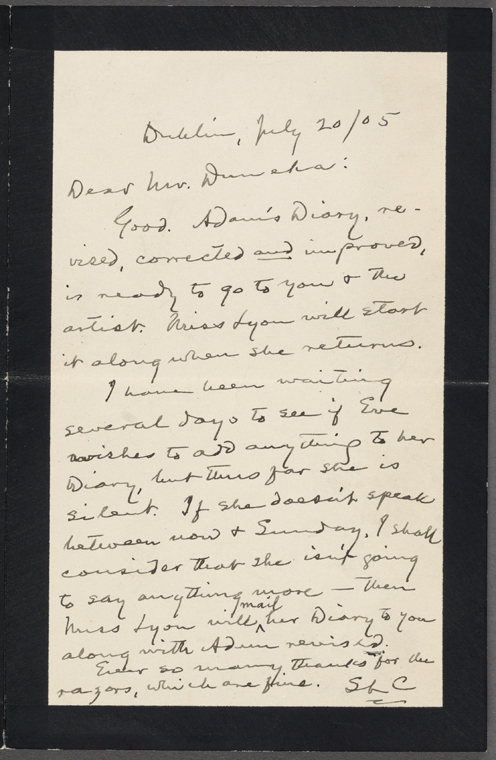 Dublin, July 20/05
Dear Mr. Duneka:
Good. Adam's Diary, re-
vised, corrected and improved,
is ready to go to you & the
artist. Miss Lyon will start
it along when she returns.
I have been waiting
several days to see if Eve
wishes to add anything to her
Diary, but thus far she is
silent. If she doesn't speak
between now & Sunday, I shall
consider that she isn't going
to say anything more — then
Miss Lyon will mail her Diary to you
along with Adam revised.
Ever so many thanks for the
razors, which are fine. SLC